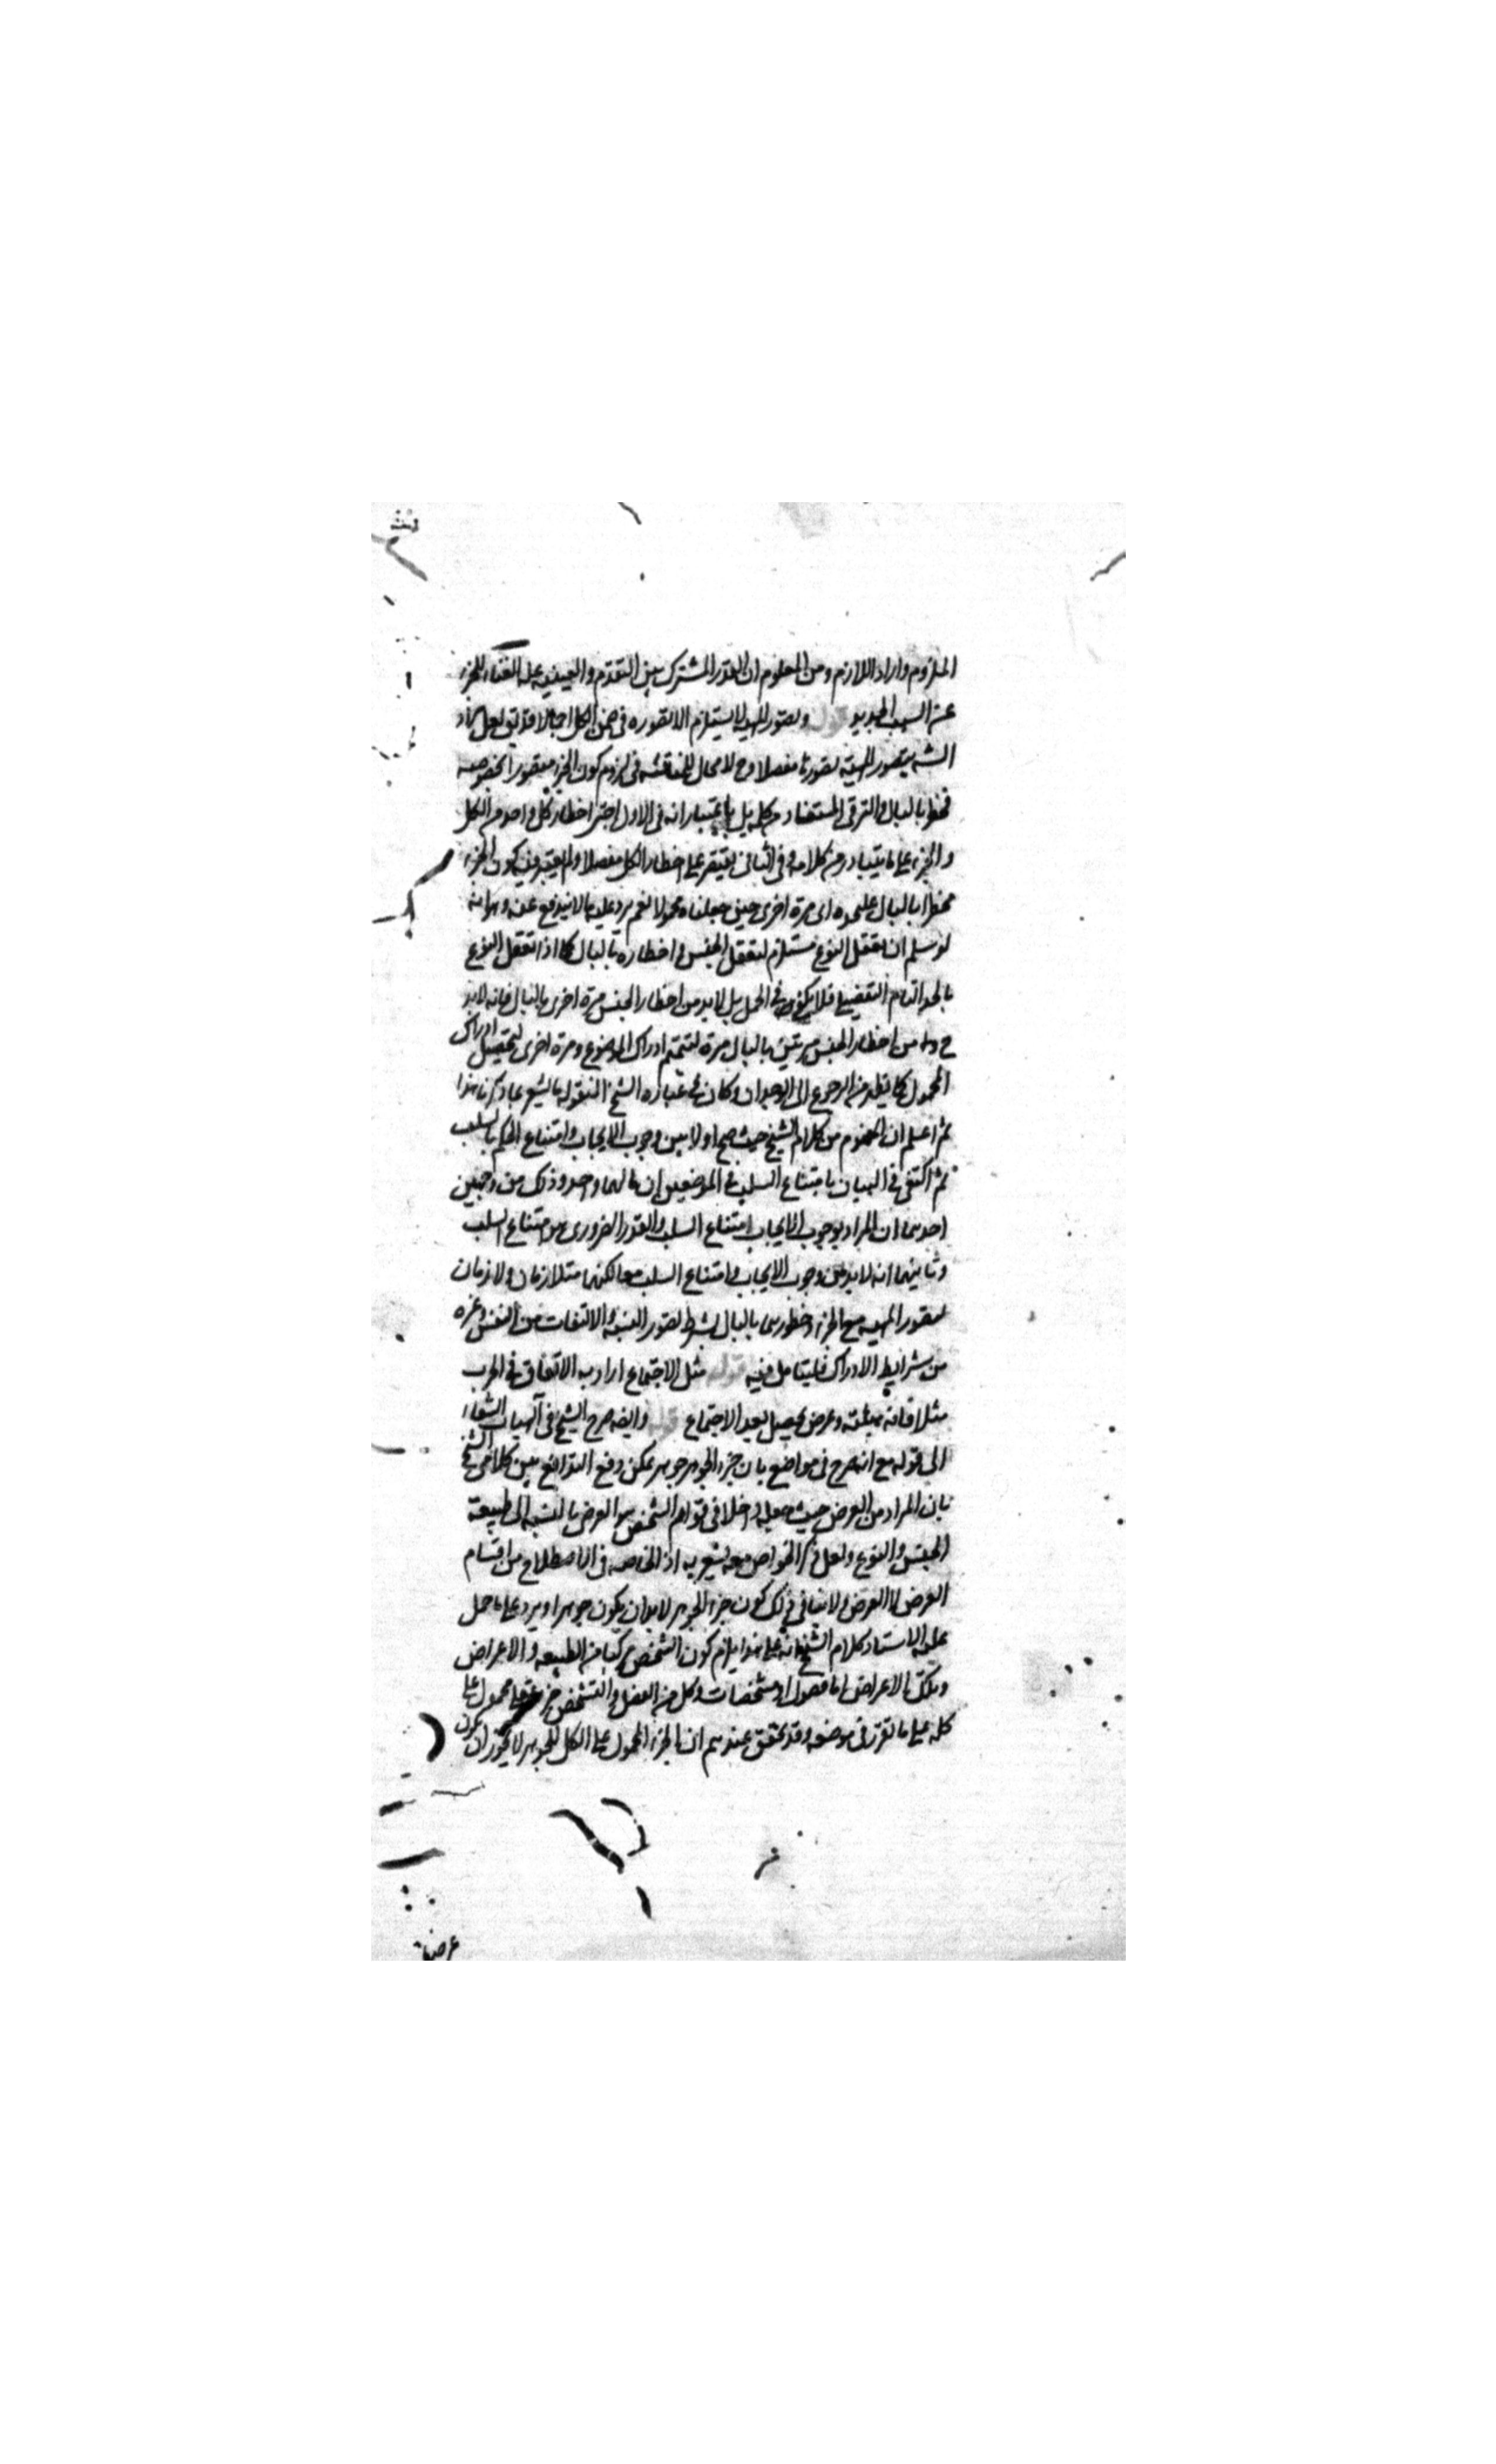 الملزوم واراد اللازم ومن المعلوم ان القدر المشترك بين التقدم والعينية علة الغناء للجزء
عن السبب الجديد قوله وتصور المهية لا يستلزم الا تصوره فى ضمن الكل اجمالا قد يق لعل مراد
الشيخ بتصور المهية تصورها مفصلا وح لا مجال للمناقشة فى لزوم كون الجزء متصورا بخصوصه
مخطرا بالبال والترقى المستفاد من كلمة بل باعتبار انه فى الاول اعتبر اخطار كل واحد من الكل
والجزء على ما يتبادر من كلامه وفى الثانى يقتصر على اخطار الكل مفصلا ولم يعتبر فيه كون الجزء
مخطرا بالبال عليحده اى مرة اخرى حين جعلناه محمولا نعم يرد عليه ما لا يندفع عنه وهو انه
لو سلم ان تعقل النوع مستلزم لتعقل الجنس واخطاره بالبال كما اذا تعقل النوع
بالحد التام التفصيلى فلا يكفى فى الحمل بل لا بد من اخطار الجنس مرة اخرى بالبال فانه لا بد
ح من اخطار الجنس مرتين بالبال مرة لتتميم ادراك الموضوع ومرة اخرى لتحصيل ادراك
المحمول كما يظهر من الرجوع الى الوجدان وكان فى عبارة الشيخ المنقولة ما يشعر بما ذكرنا هذا
ثم اعلم ان المفهوم من كلام الشيخ حيث جمع اولا بين وجوب الايجاب وامتناع الحكم بالسلب
ثم اكتفى فى البيان بامتناع السلب فى الموضعين ان مالهما واحد وذلك من وجهين
احدهما ان المراد بوجوب الايجاب امتناع السلب والقدر الضرورى هو امتناع السلب
وثانيهما انه لا بد من وجوب الايجاب وامتناع السلب معا لكنهما متلازمان ولازمان
لتصور المهية مع الجزء وخطورهما بالبال بشرط تصور النسبة والالتفات من النفس وغيره
من شرايط الادراك فليتامل فيه قوله مثل الاجتماع اراد به الاتفاق فى الحرب
مثلا فانه هيئة وعرض يحصل بعد الاجتماع قوله وايضا صرح الشيخ فى آلهيات الشفاء
الى قوله مع انه صرح فى مواضع بان جزء الجوهر جوهر يمكن دفع التدافع بين كلامى الشيخ
بان المراد من العرض حيث جعله داخلا فى قوام الشخص هو العرض بالنسبة الى طبيعة
الجنس والنوع ولعل ذكر الخواص معه يشعر به اذ الخاصة فى الاصطلاح من اقسام
العرض لا العرض ولا ينافى ذلك كون جزء الجوهر لا بد ان يكون جوهرا ويرد على ما حمل
عليه الاستاد كلام الشيخ انه على هذا يلزم كون الشخص مركبا من الطبيعة والاعراض
وتلك الاعراض اما فصول او مشخصات وكل من الفصل والتشخص جزء عقلى محمول على
كله على ما تقرر فى موضعه وقد تحقق عندهم ان الجزء المحمول على الكل للجوهر لا يجوز ان يكون
عرضيا